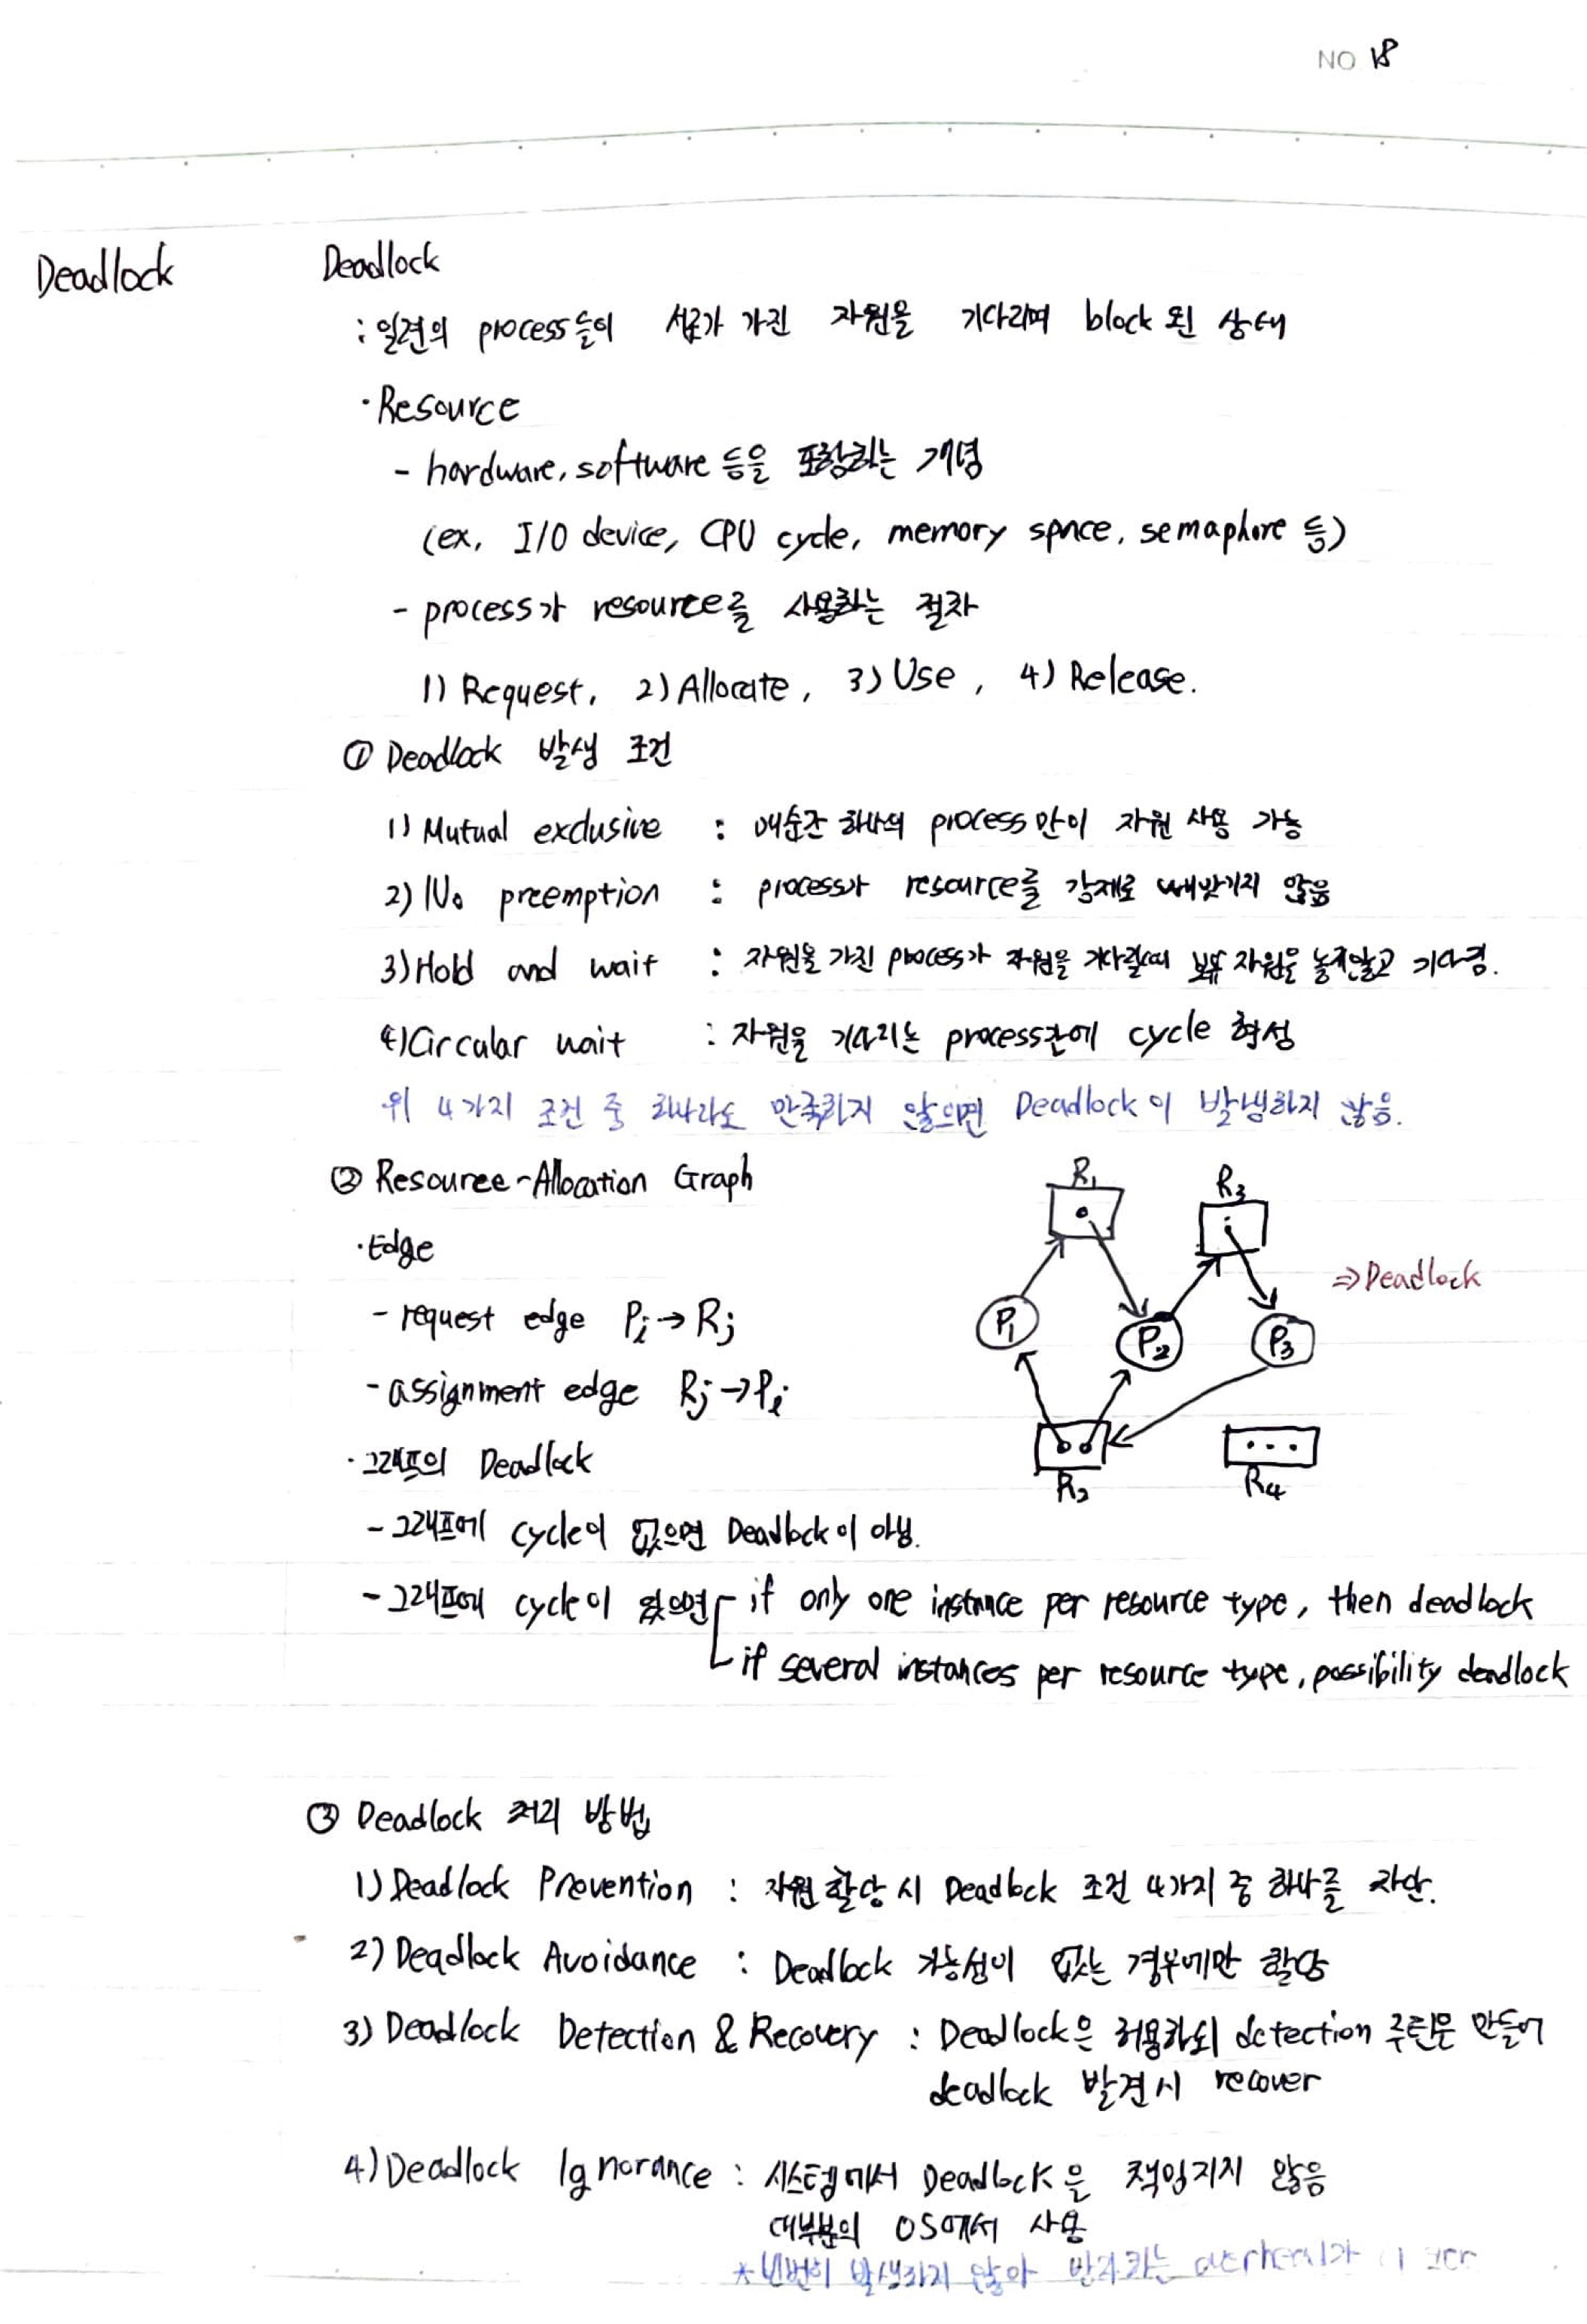 NO 18
Deadlock
Deadlock
: 일련의 process들이 서로가 가진 자원을 기다리며 block 된 상태
· Resource
- hardware, software 등을 포함하는 개념
(ex, I/O device, CPU cycle, memory space, semaphore 등)
- process가 resource를 사용하는 절차
1) Request, 2) Allocate, 3) Use, 4) Release.
① Deadlock 발생 조건
1) Mutual exclusive : 매순간 하나의 process만이 자원 사용 가능
2) No preemption : process가 resource를 강제로 빼앗기지 않음
3) Hold and wait : 자원을 가진 process가 자원을 기다릴때 보유 자원을 놓지않고 기다림.
4) Circular wait : 자원을 기다리는 process간에 cycle 형성
위 4가지 조건 중 하나라도 만족하지 않으면 Deadlock이 발생하지 않음.
② Resource-Allocation Graph
· Edge
- request edge Pi → Rj
- assignment edge Rj → Pi
R1 R3
P1 P2 P3
⇒ Deadlock
R2 R4
· 그래프의 Deadlock
- 그래프에 cycle이 없으면 Deadlock이 아님.
- 그래프에 cycle이 있으면 if only one instance per resource type, then deadlock
if several instances per resource type, possibility deadlock
③ Deadlock 처리 방법
1) Deadlock Prevention : 자원 할당 시 Deadlock 조건 4가지 중 하나를 차단.
2) Deadlock Avoidance : Deadlock 가능성이 없는 경우에만 할당
3) Deadlock Detection & Recovery : Deadlock은 허용하되 detection 루틴을 만들어
deadlock 발견시 recover
4) Deadlock Ignorance : 시스템에서 Deadlock은 책임지지 않음
대부분의 OS에서 사용
* 빈번히 발생하지 않아 방지하는 overhead가